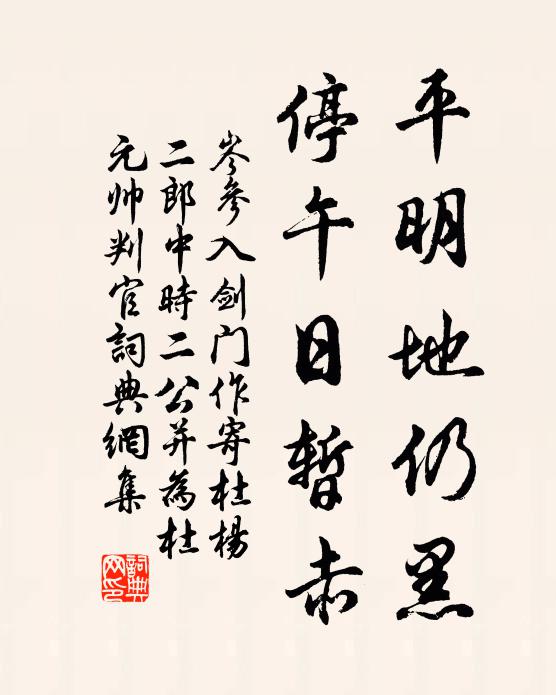 平明地仍黑
停午日暫赤
岑參入剑门作寄杜楊
二郎中時二公并為杜
元帅判官詞典網集
詞典
网印